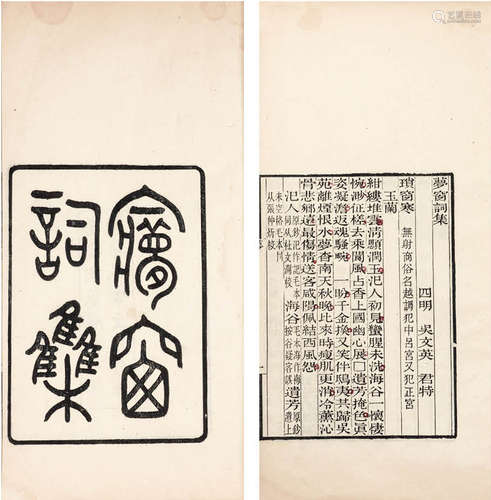 夢窗
詞集
夢窗詞集
四明 吳文英 君特
瑣窗寒 無射商俗名越調犯中呂宮又犯正宮
玉蘭
紺縷堆雲清顋潤玉汜人初見蠻腥未洗海谷一懷悽
惋渺征槎去乘閬風占香上國幽心展□遺芳掩色眞
姿凝澹返魂騷畹 一盼千金換又笑伴鴟夷共歸吳
苑離煙恨水夢杳南天秋晚比來時瘦肌更消冷薰沁
骨悲鄉遠最傷情送客咸陽佩結西風怨
汜人 同從杜文瀾校 海谷 按谷疑客誤 遺芳 原鈔遺上
未空格毛本同從張仲炘校